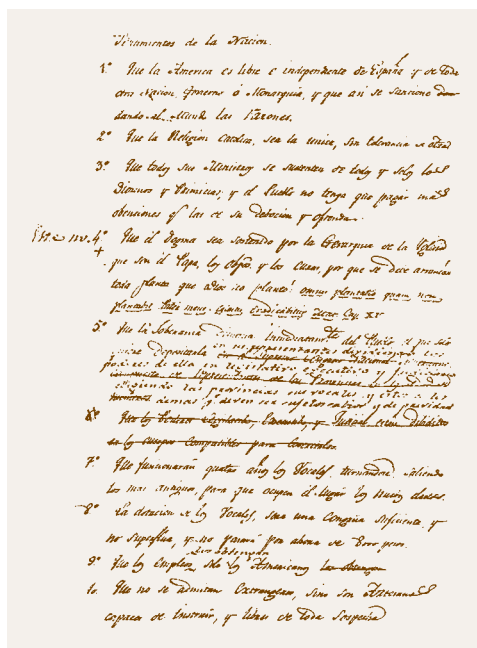 Sentimientos de la Nacion.
1.° Que la America es libre e independiente de España y de toda
otra Nacion, Govierno ó Monarquia, y que asi se sancione
dando al Mundo las razones.
2.° Que la Religion Catolica, sea la unica, sin tolerancia de otra
3.° Que todos sus Ministros se sustenten de todos y solos los
Diezmos y Primicias, y el Pueblo no tenga que pagar mas
obenciones q.e las de su debocion y ofrenda.
4.° Que el Dogma sea sostenido por la Gerarquia de la Iglesia
que son el Papa, los Obispos y los Curas, por que se debe arrancar
toda planta que Dios no plantó: omnis plantatio quam non
plantabit Pater meus Celestis eradicabitur Mat. Cap. XV
5.° Que la Soberania dimana inmediatam.te del Pueblo, el que solo
quiere depositarla en sus representantes dividiendo los
poderes de ella en legislativo executivo y judiciario
eligiendo las provincias sus vocales, y estos a los
demas q. deven ser sujetos sabios y de provi­dad
7.° Que funcionarán quatro años los Vocales, turnandose, saliendo
los mas antiguos, para que ocupen el lugar los nuevos electos.
8.° La dotacion de los Vocales, sera una Congrua suficiente y
no superflua, y no pasará por ahora de 8000 pesos.
los obtengan
9.° Que los empleos solo los Americanos
10. Que no se admitan Extrangeros, sino son Artesanos
capaces de instruir, y libres de toda sospecha